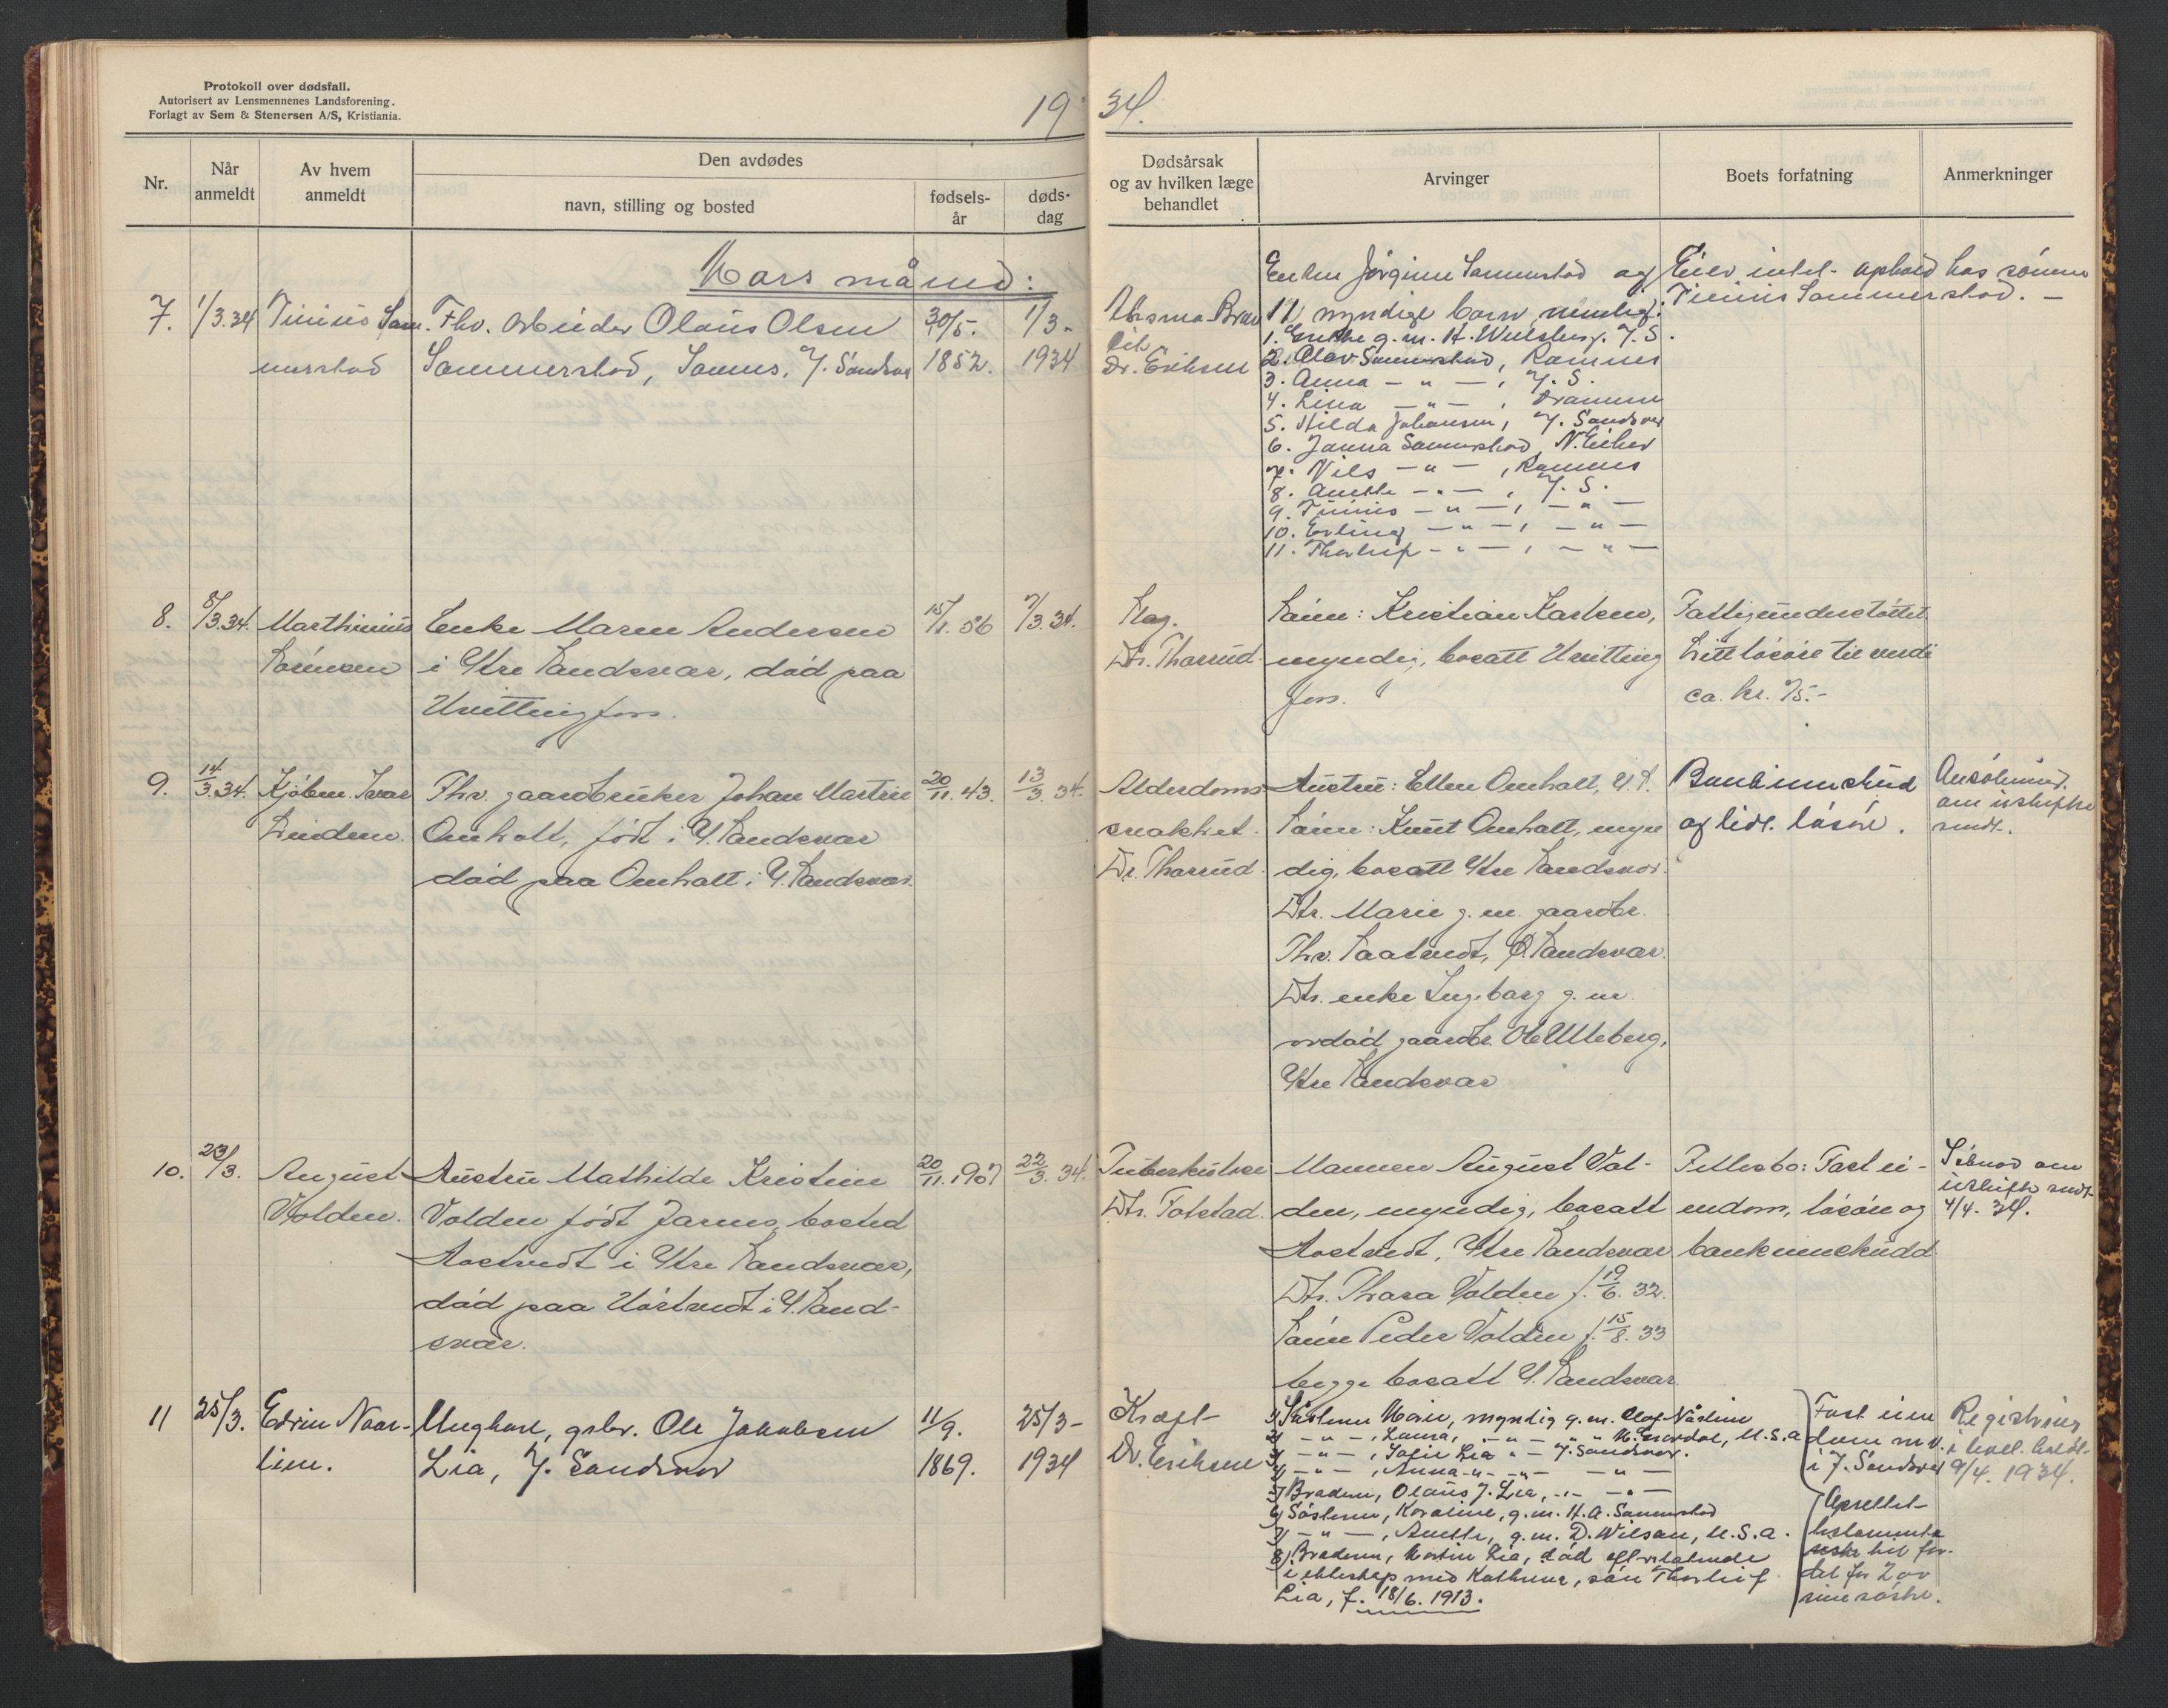 Protokoll over dødsfall.
Autorisert av Lensmennenes Landsforening.
Forlagt av Sem & Stenersen A/S, Kristiania.
1934.
Nr.
Når anmeldt
Av hvem anmeldt
Den avdødes
navn, stilling og bosted
fødsels-år
døds-dag
Dødsårsak og av hvilken læge behandlet
Arvinger
Boets forfatning
Anmerkninger
Mars måned:
7. 1/3.34 Tinius Sam-
merstad
Fhv. Arbeider Olaus Olsen
Sammerstad, Samms, Y. Sandsvær
30/5. 1852.
1/3- 1934
Dr. Eriksen
Enken Jørgine Sammerstad og
11 myndige barn nemlig:
1. Grethe g.m. H. Wulsberg. Y. S.
2. Olav Sammerstad, Ramnes
3. Anna — " — , Y. S.
4. Lina — " — , Drammen
5. Hilda Johansen, Y. Sandsvær
6. Janna Sammerstad, N. Eiker
7. Nils — " — , Ramnes
8. Anette — " — , Y. S.
9. Tinius — " — , — " —
10. Erling — " — , — " —
11. Thorleif — " — , — " —
Eier intet. Ophold hos sønnen
Tinius Sammerstad. —
8. 8/3.34. Marthinius
Sørensen
Enke Maren Andersen
i Ytre Sandsvær, død paa
Hvittingfoss.
15/1. 56
7/3.34.
Slag.
Dr. Thorrud
Sønn: Kristian Karlsen,
myndig, bosatt Hvitting
foss.
Fattigunderstøttet.
Litt løsøre til verdi
ca. kr. 75.-
9. 14/3.34. Kjøbm. Ivar
Lindem.
Fhv. gaardbruker Johan Martin
Omholt, født i Y. Sandsvær
død paa Omholt i Y. Sandsvær.
20/11. 43.
13/3. 34.
Alderdoms-
svakhet.
Dr. Thorrud.
Hustru: Ellen Omholt, Y. S.
Sønn: Knut Omholt, myn
dig, bosatt Ytre Sandsvær.
Dtr. Marie g. m. gaardbr.
Thv. Saatvedt, Ø. Sandsvær.
Dtr. enke Ingeborg g. m.
avdød gaardbr. Ole Ulleberg,
Ytre Sandsvær
Bankinnskud
og lidt løsøre.
Ansøkning
om uskifte
sendt.
10. 23/3. August
Volden.
Hustru Mathilde Kristine
Volden født Jarnes, bosted
Aostvedt i Ytre Sandsvær,
død paa Hostvedt i Y. Sand-
svær.
20/11. 1907
22/3. 34.
Tuberkulose
Dr. Fotstad.
Mannen August Vol-
den, myndig, bosatt
Aostvedt, Ytre Sandsvær
Dtr. Thora Volden f. 19/6. 32.
Sønn Peder Volden f. 15/8. 33
begge bosatt Y. Sandsvær.
Fellesbo: Fast ei-
endom, løsøre og
bankinnskudd
Søknad om
uskifte sendt
4/4. 34.
11 25/3. Edvin Naar-
lien.
Ungkarl, grbr. Ole Jakobsen
Lia, Y. Sandsvær
11/9. 1869.
25/3- 1934
Kræft
Dr. Eriksen
1) Søsteren Marie, myndig g.m. Olaf Nårlien
2) — " — , Laura, — " — " " N. Enerdal, U.S.A.
3) — " — , Sofie Lia " — Y. Sandsvær.
4) — " — , Anna — " — " — — " —
5) Broderen, Olaus J. Lia, — " — — " —
6) Søsteren, Karoline, g.m. H. A. Sammerstad
7) — " — , Anette, g.m. D. Wilson, U.S.A.
8) Broderen, Martin Lia, død efterlatende
i ekteskap med Kathrine, søn Thorleif
Lia, f. 18/6. 1913.
Fast eien
dom m.v.
i Y. Sandsvær
Oprettet
testamente
til for-
del for 2 av
sine søstre.
Registrering
i boet holdt
9/4. 1934.